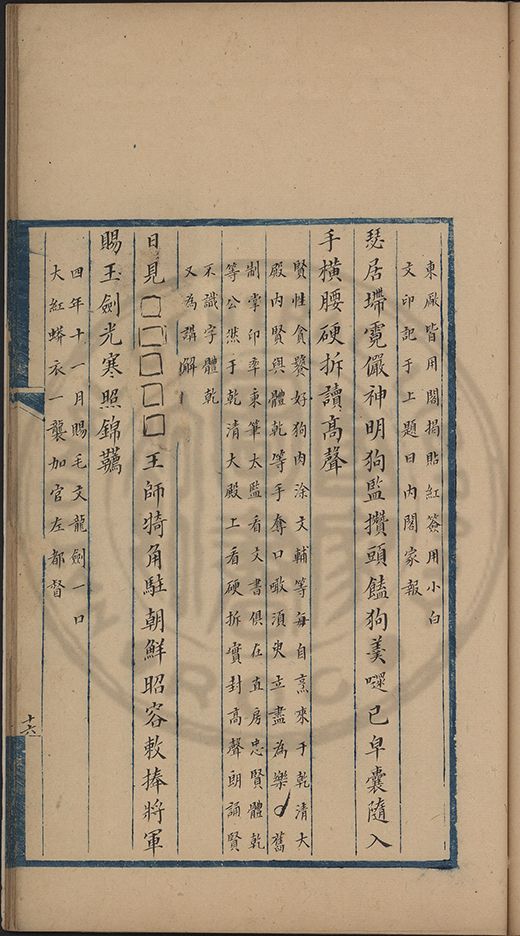 東廠皆用閣揭貼紅簽用小白
文印記于上題曰內閣家報
瑟居墆霓儼神明狗監攢頭饁狗羹嚃已皁囊隨入
手橫腰硬拆讀高聲
賢性貪饕好狗肉涂文輔等每自烹來于乾清大
殿內賢與體乾等手奪口噉須臾立盡為樂舊
制掌印率秉筆太監看文書俱在直房忠賢體乾
等公然于乾清大殿上看硬拆實封高聲朗誦賢
不識字體乾
又為講解
日見□□□□□王師犄角駐朝鮮昭容敕捧將軍
賜玉劍光寒照錦韉
四年十一月賜毛文龍劍一口
大紅蟒衣一襲加官左都督
十六